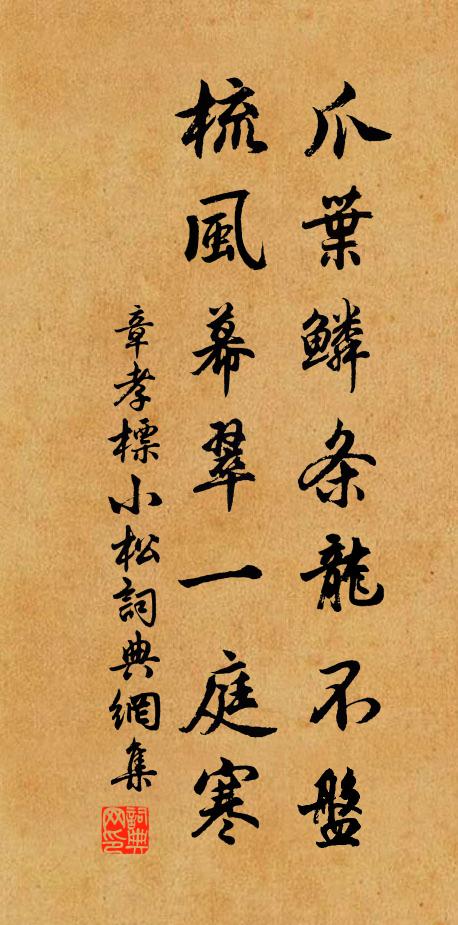 爪葉鱗条龍不盤
梳風幕翠一庭寒
章孝標小松詞典網集
詞典网印